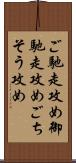 ご馳走攻め御
馳走攻めごち
そう攻め